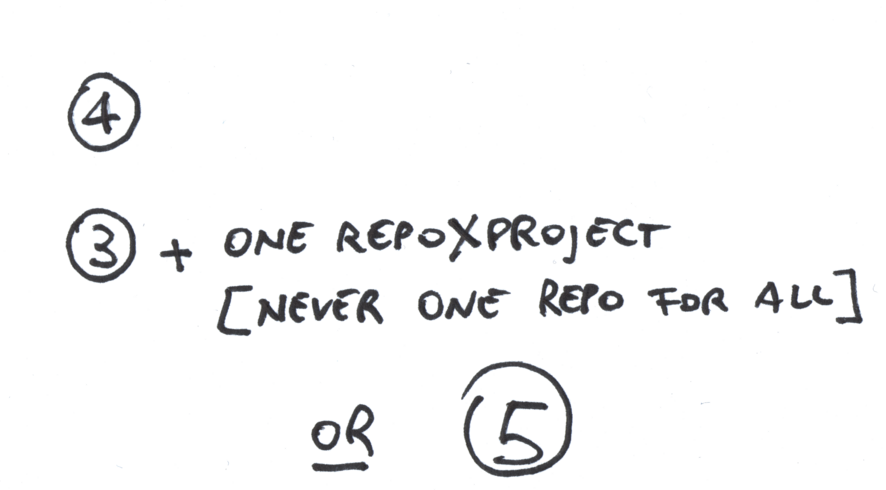 4
3 + ONE REPOXPROJECT
[NEVER ONE REPO FOR ALL]
OR 5